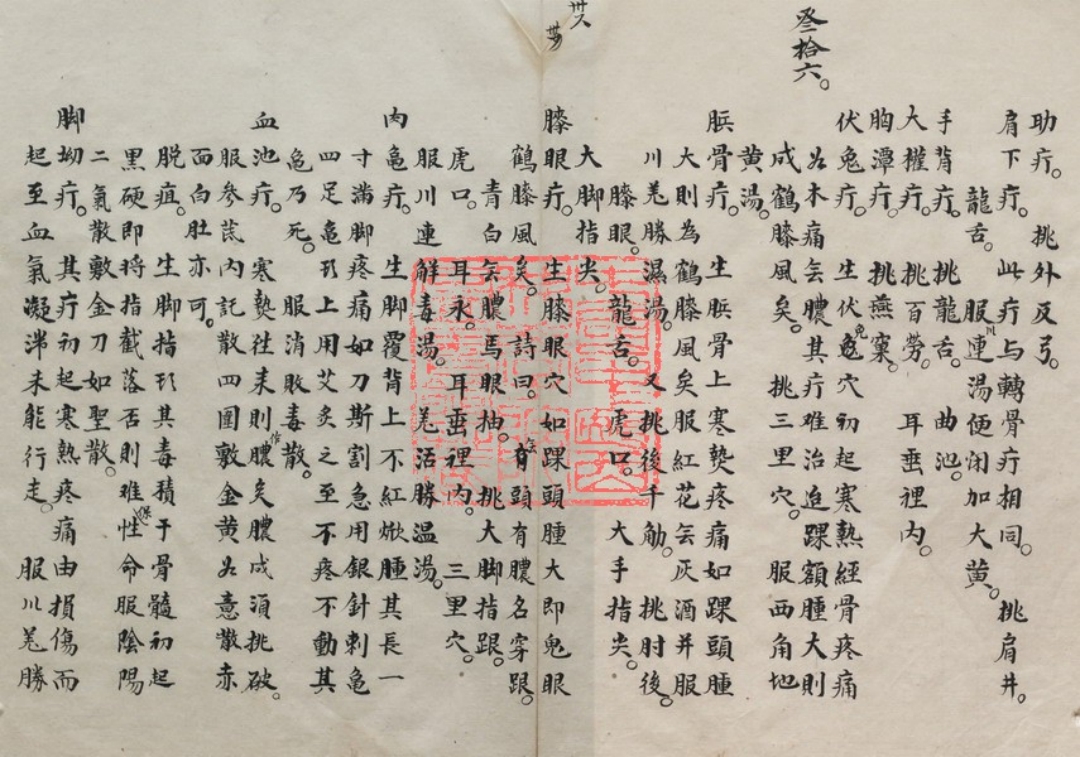 叁拾六。
助疔。　挑外反弓。
肩下疔。此疔与轉骨疔相同。挑肩井。
龍舌。　服川連湯便闭加大黄。
手背疔。　挑龍舌。　曲池。
大權疔。　挑百劳。　耳垂裡内。
胸潭疔。　挑燕窠。
伏兔疔。　生伏兔穴初起寒熱經骨疼痛
如木痛無膿其疔难治迨踝額腫大則
成鶴膝風矣。　挑三里穴。　服西角地
黄湯。
脤骨疔。　生脤骨上寒熱疼痛如踝頭腫
大則為鶴膝風矣服紅花無灰酒并服
川羌勝濕湯。又挑後千觔。　挑肘後。
膝眼。　龍舌。　虎口。　大手指尖。
大脚指尖。
膝眼疔。　生膝眼穴如踝頭腫大即鬼眼
鶴膝風矣。詩曰。無頭有膿名穿踉。
青白無膿馬眼抽。　挑大脚指踉。
虎口。　耳永。　耳垂裡内。　三里穴。
服川連解毒湯。　羌活勝温湯。
肉龟疔。　生脚覆背上不紅焮腫其長一
寸滿脚疼痛如刀斯割急用銀針刺龟
四足龟形上用艾灸之至不疼不動其
龟乃死。　服消敗毒散。
血池疔。　寒熱往来則作膿矣膿成須挑破。
服参芪内託散四圍敷金黄如意散赤
面白肚亦可。
脱疽。　生脚指形其毒積于骨髓初起
黑硬即将指截落否則难保性命服陰陽
二氣散敷金刀如聖散。
脚坳疔。　其疔初起寒熱疼痛由損傷而
起至血氣凝滞未能行走。　服川羌勝